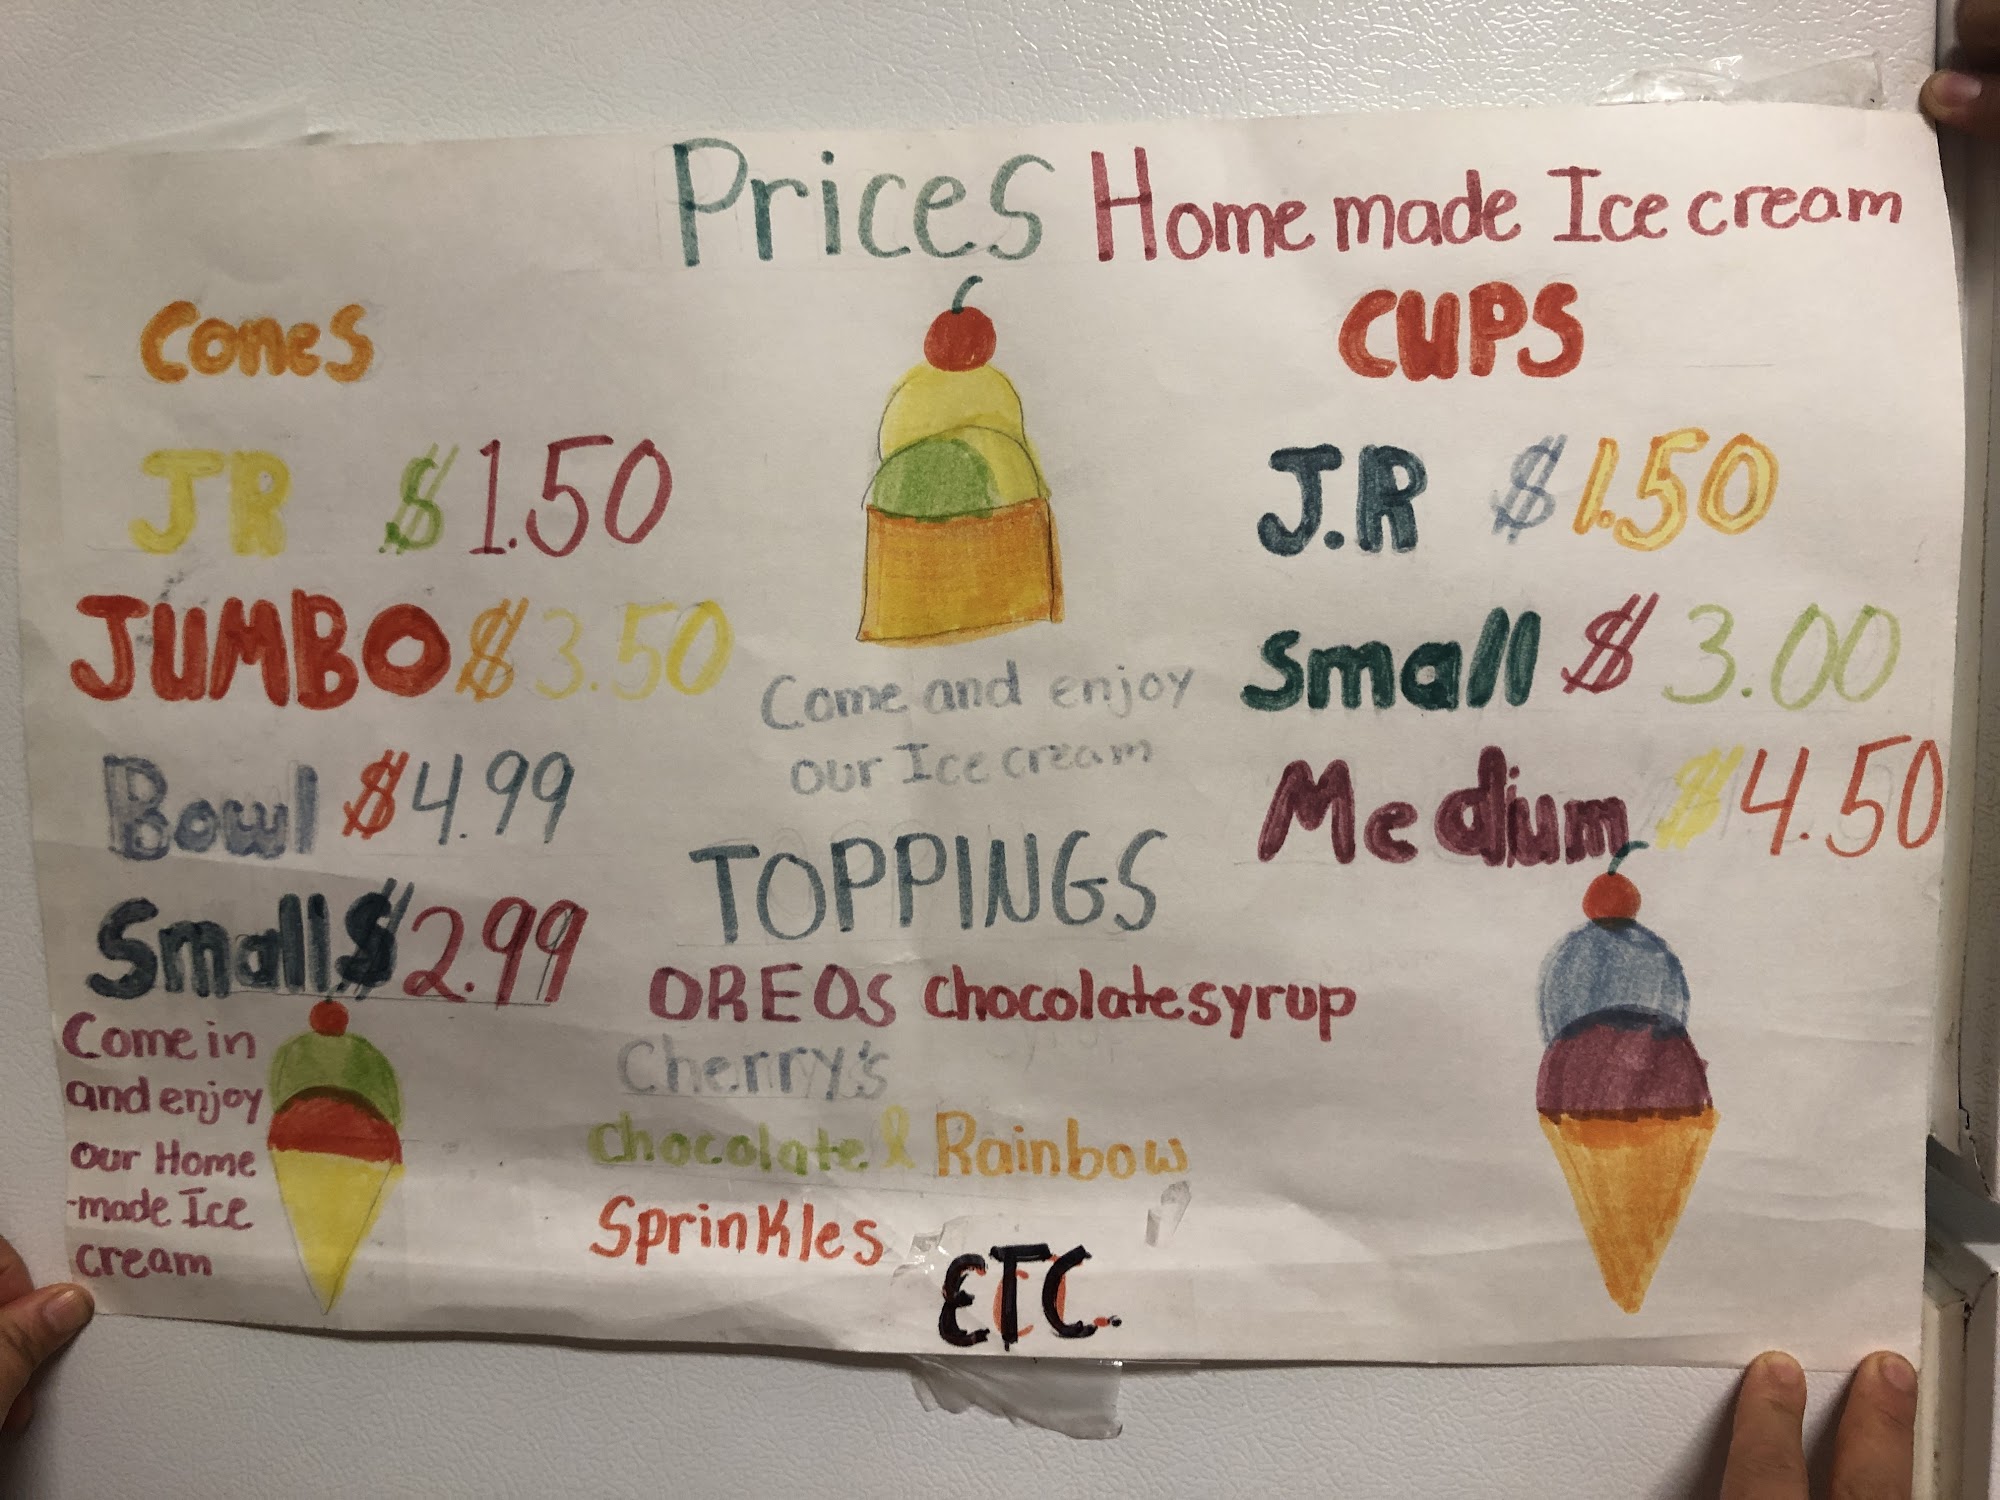 Prices Home made Ice cream
Cones
JR $1.50
JUMBO $3.50
Bowl $4.99
Small $2.99
Come in
and enjoy
our Home
-made Ice
cream
Come and enjoy
our Ice cream
TOPPINGS
OREOs chocolate syrup
Cherry's
chocolate & Rainbow
Sprinkles
ETC.
CUPS
J.R $1.50
Small $3.00
Medium $4.50